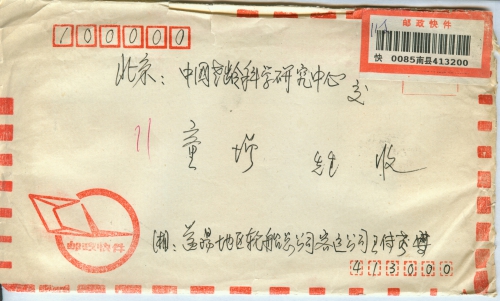 邮政快件
快 0085南县413200
100000
北京：中国老龄科学研究中心交
童 收
邮政快件
湘：益阳地区轮船总公司客运公司
413000